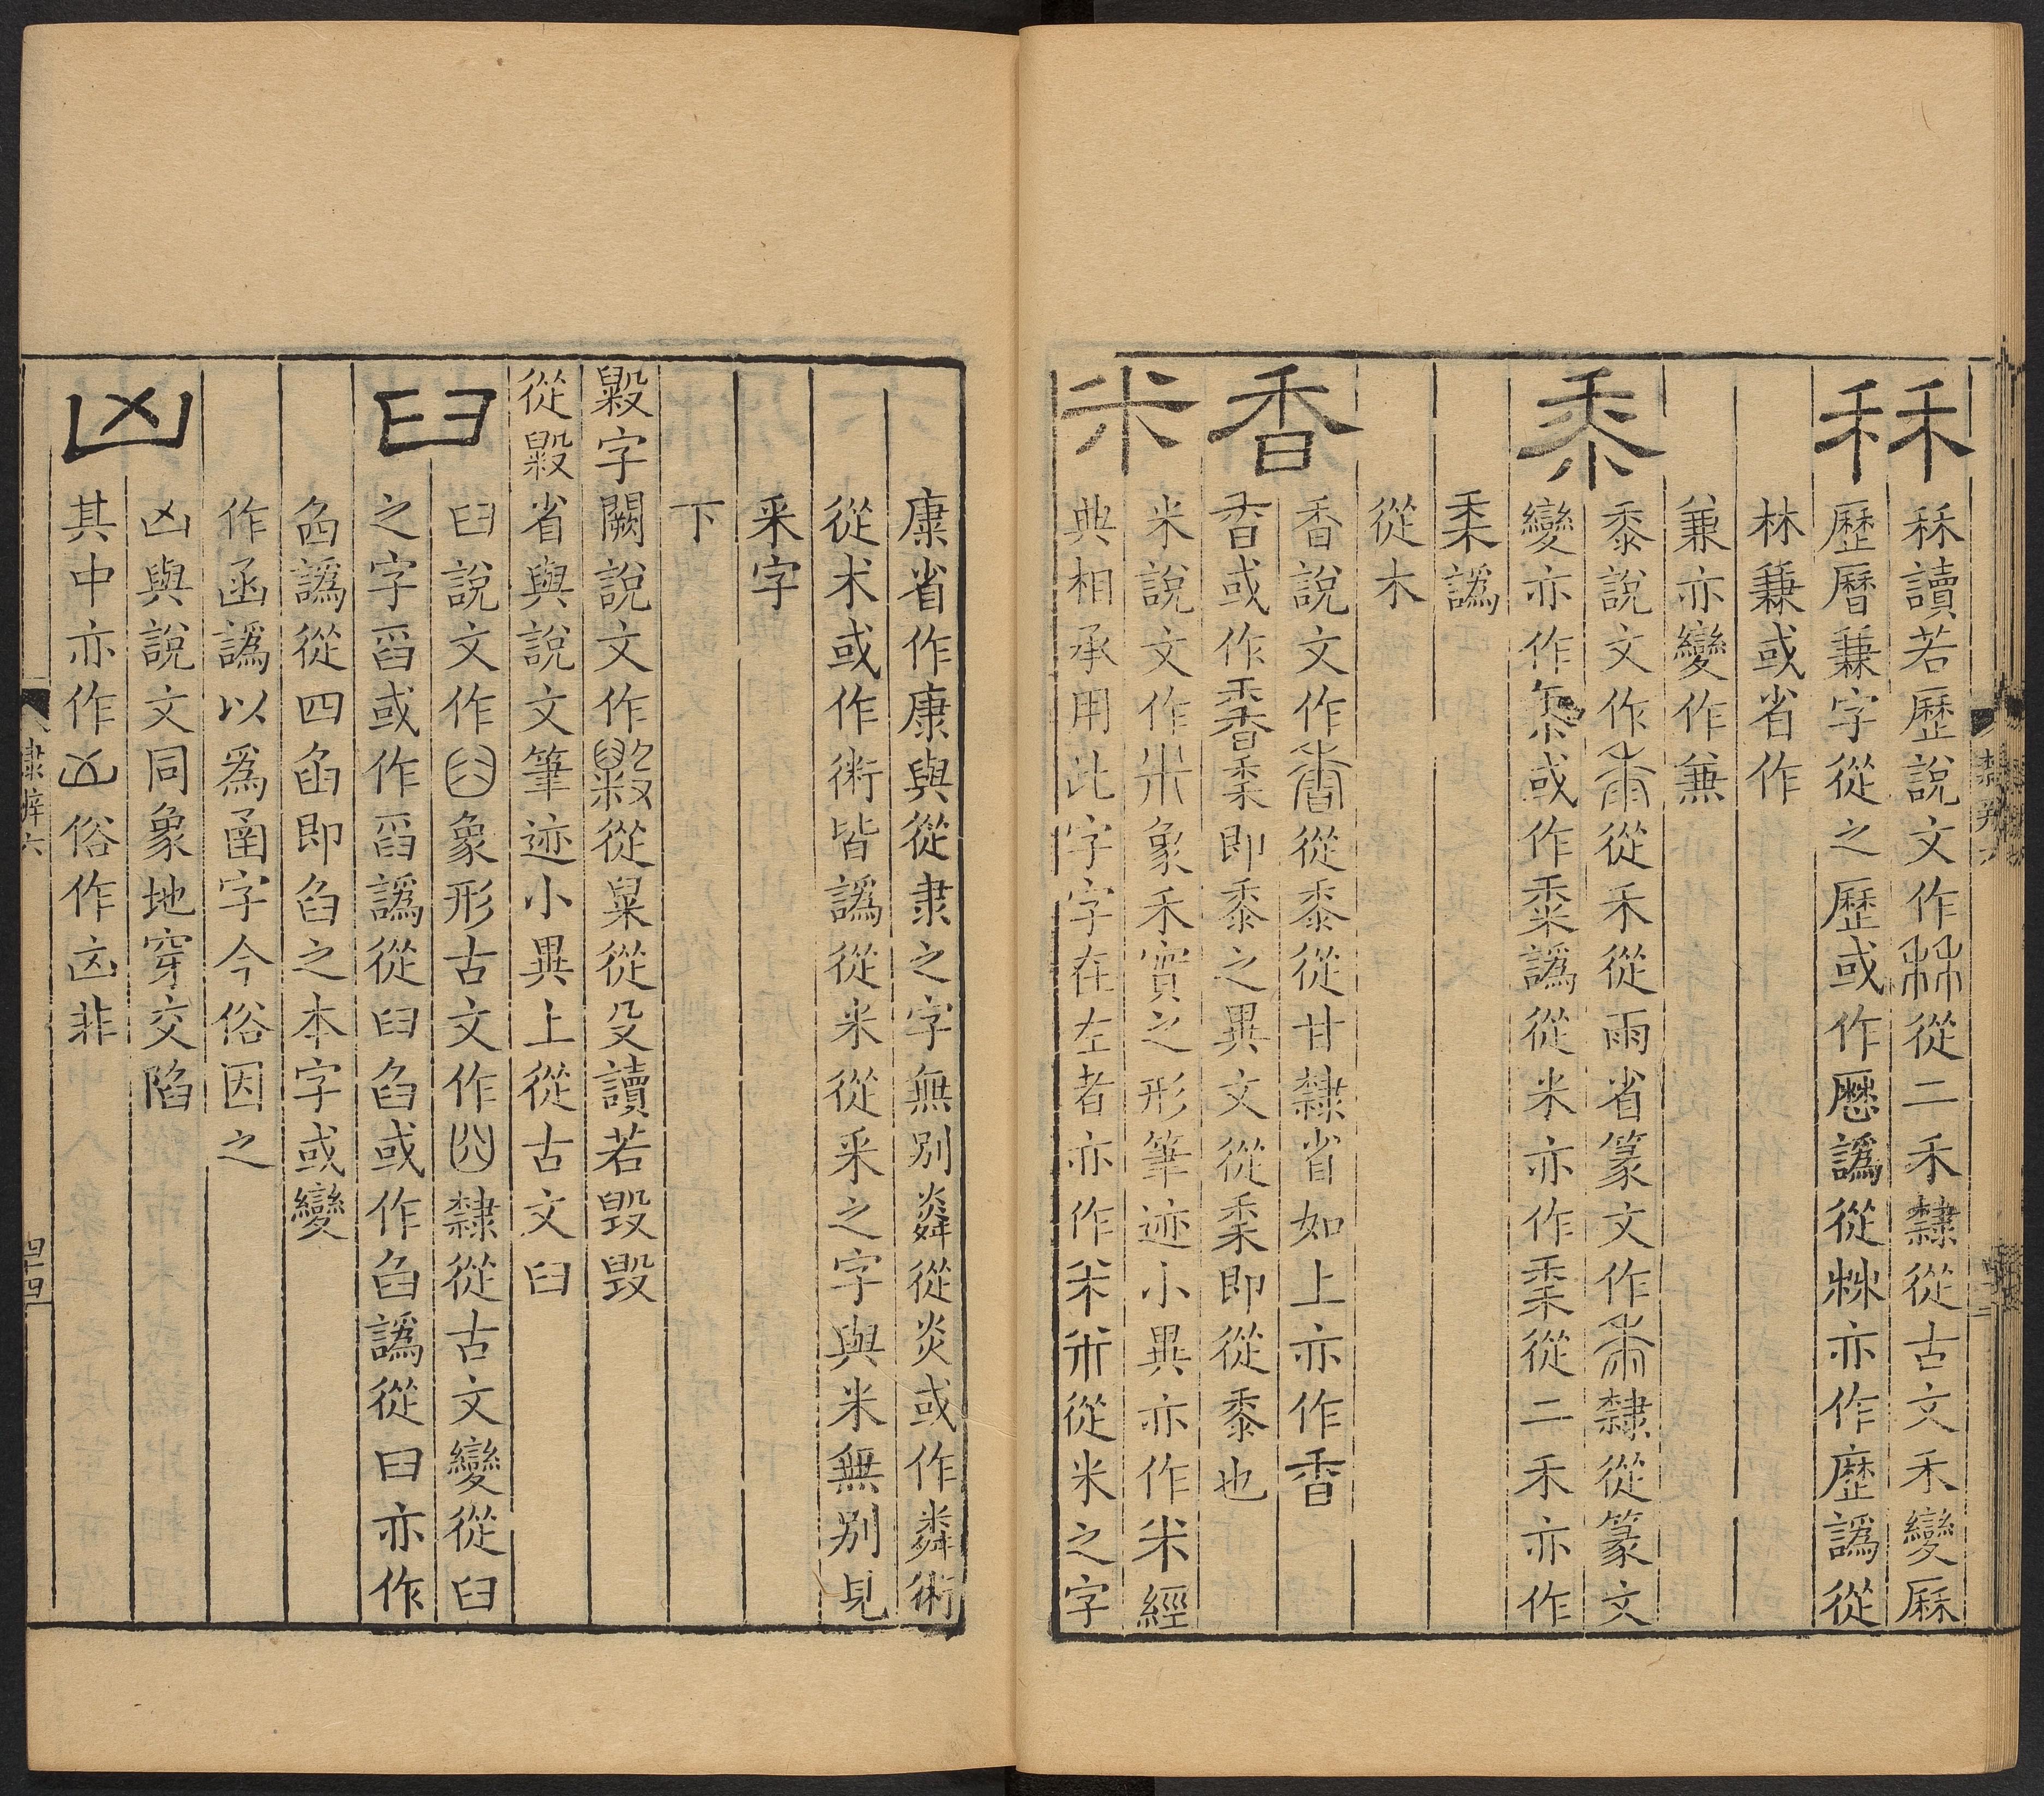 秝
秝讀若歷說文作秝從二禾隸從古文禾變厤
歷曆兼字從之歷或作愿譌從林亦作歷譌從
林蒹或省作
兼亦變作兼
黍
黍說文作黍從禾從雨省篆文作黍隸從篆文
變亦作黍或作黍譌從米亦作桼從二禾亦作
桼譌
從木
香
香說文作香從黍從甘隸省如上亦作香
香或作馫桼即黍之異文從桼即從黍也
米
米說文作米象禾實之形筆迹小異亦作米經
典相承用此字字在左者亦作米从從米之字
康省作康與從隶之字無別粦從炎或作粦術
從术或作術皆譌從米從釆之字與米無別見
釆字
下
毇字闕說文作毇從臼米從殳讀若毀毀
從毇省與說文筆迹小異上從古文臼
臼
臼說文作臼象形古文作臼隸從古文變從臼
之字舀或作舀譌從臼臽或作臽譌從日亦作
臽譌從四臽即臽之本字或變
作函譌以為函字今俗因之
凶
凶與說文同象地穿交陷
其中亦作凶俗作㐫非
隸辨六
四十四